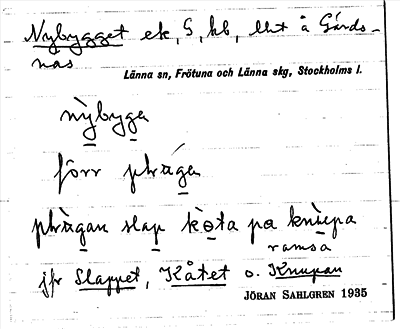 Nybygget ek, S, kb, lht å Gärds-
näs
Länna sn, Frötuna och Länna skg, Stockholms l.
nỳbyga
förr phràga
phràgan slap kòta pa knùpa
ramsa
jfr Slappet, Kåtet o. Knupan
JÖRAN SAHLGREN 1935